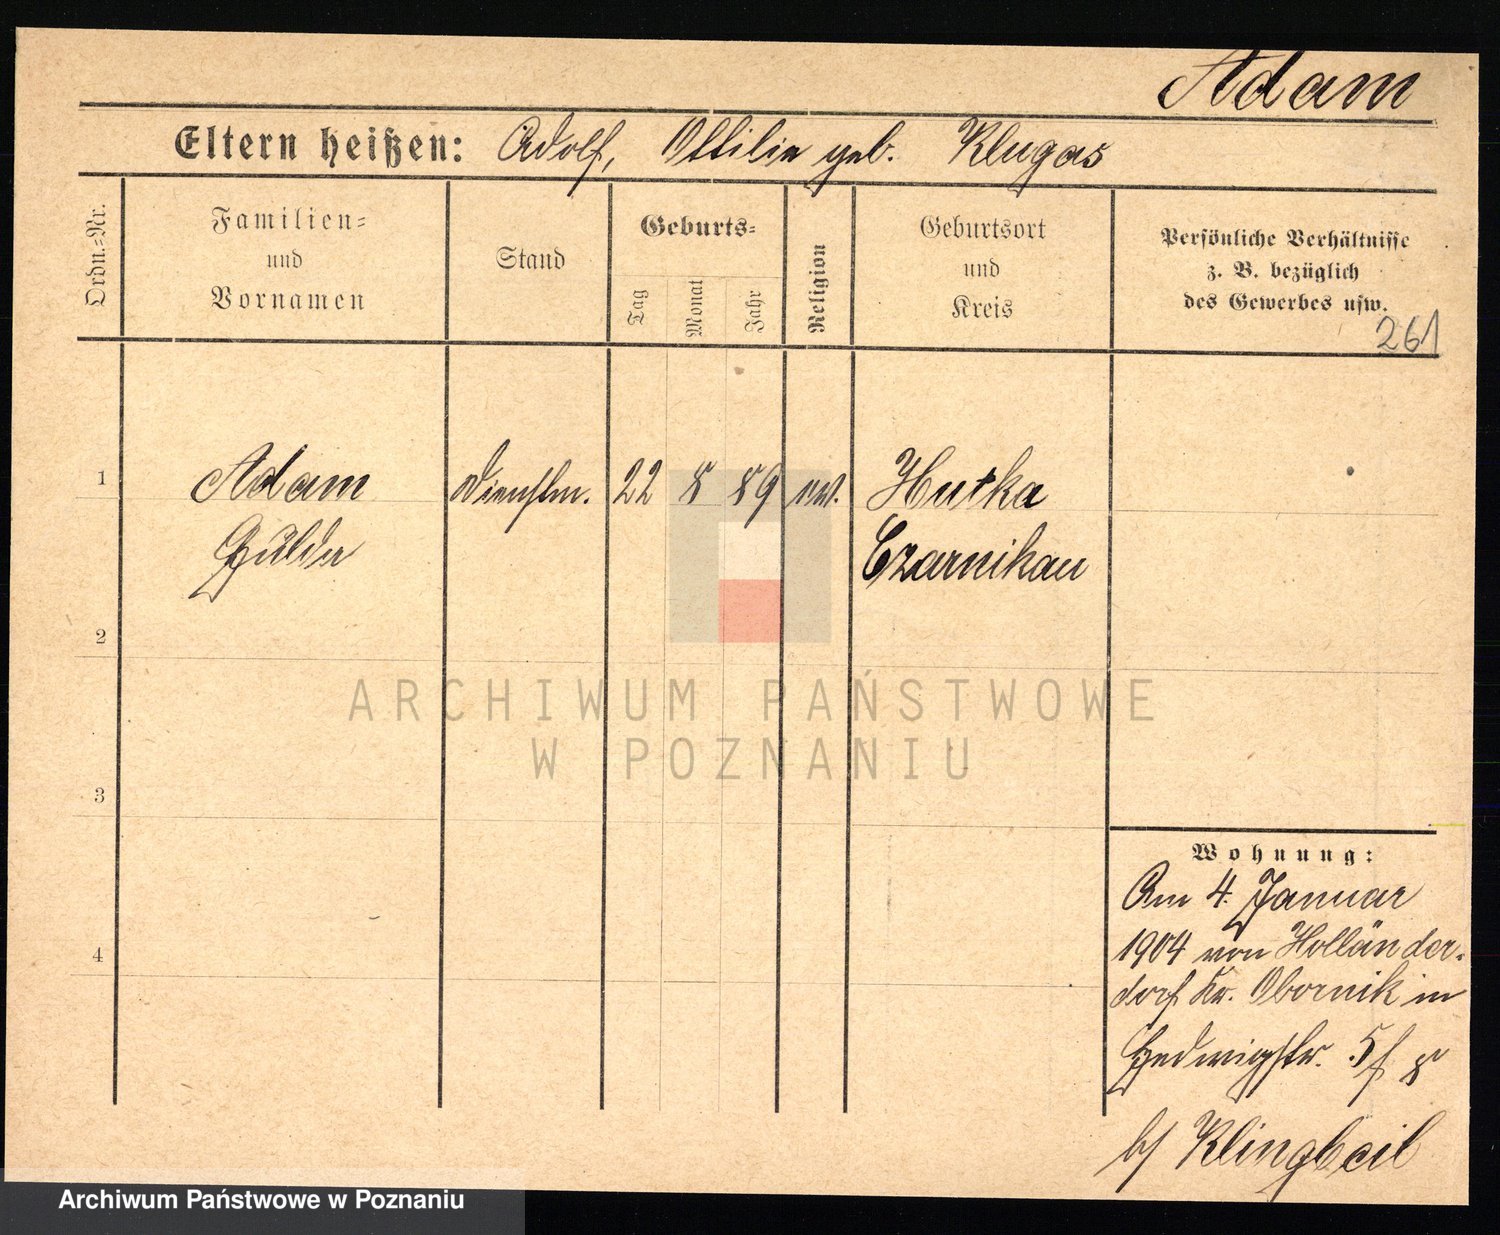 Adam
Eltern heißen: Adolf, Ottilie geb. Klugas
Ordn.=Nr.
Familien=
und
Vornamen
Stand
Geburts=
Tag
Monat
Jahr
Religion
Geburtsort
und
Kreis
Persönliche Verhältnisse
z. B. bezüglich
des Gewerbes usw.
261
1 Adam Dienstm. 22 8 89 ev. Hutka
Hulda Czarnikau
2
3
4
ARCHIWUM PAŃSTWOWE
W POZNANIU
Wohnung:
Am 4. Januar
1904 von Holländer-
dorf Kr. Obornik in
Hedwigstr. 5
b/ Klingbeil
Archiwum Państwowe w Poznaniu